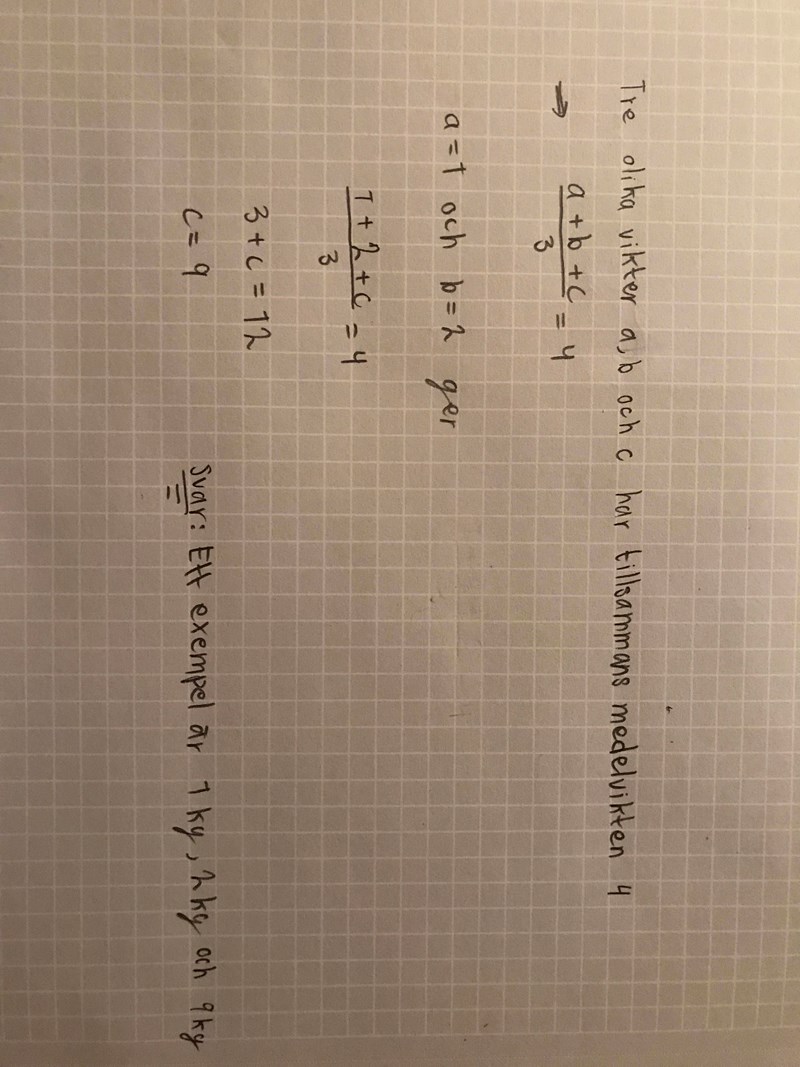 Tre olika vikter a, b och c har tillsammans medelvikten 4
→ a + b + c / 3 = 4
a = 1 och b = 2 ger
1 + 2 + c / 3 = 4
3 + c = 12
c = 9
Svar: Ett exempel är 1 kg, 2 kg och 9 kg